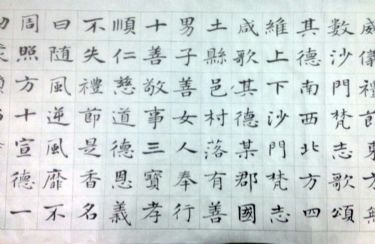 威儀禮節東方無
數沙門梵志歌頌
其德南西北方四
維上下沙門梵志
咸歌其德某郡國
土縣邑村落有善
男子善女人奉行
十善敬事三寶孝
順仁慈道德恩義
不失禮節是香名
曰随風逆風靡不
周照方十宣德一